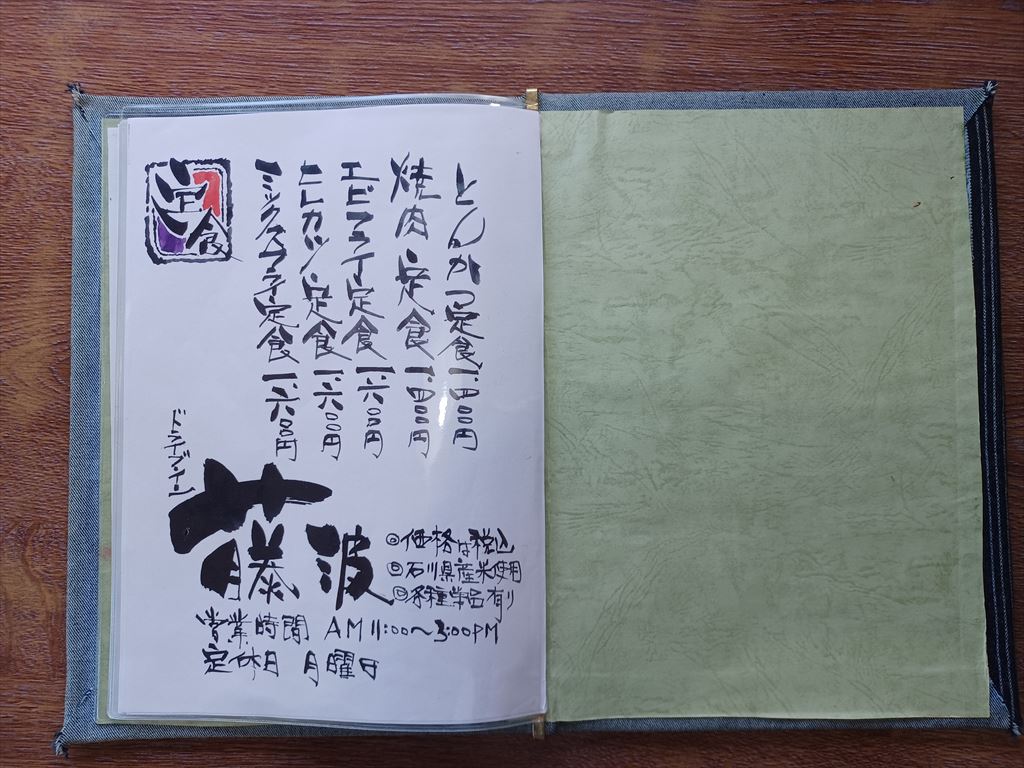 とんかつ定食一、四〇〇円
焼肉定食一、四〇〇円
エビフライ定食一、六〇〇円
ヒレカツ定食一、六〇〇円
ミックスフライ定食一、六〇〇円
定食
ドライブ・イン
藤波
◎価格は税込
◎石川県産米使用
◎各種単品有り
営業時間 AM11:00～3:00PM
定休日 月曜日